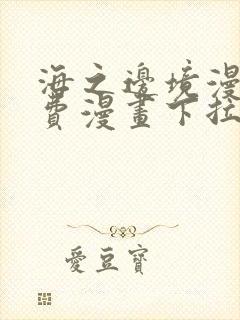 海之邊境漫
費漫畫下拉
愛豆寶